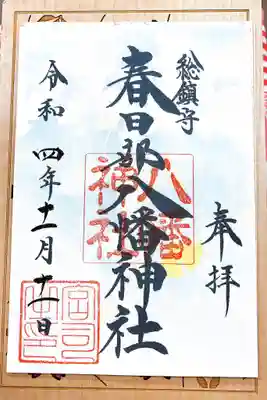 奉拝
総鎮守
春日部八幡神社
八幡神社
令和四年十一月十一日